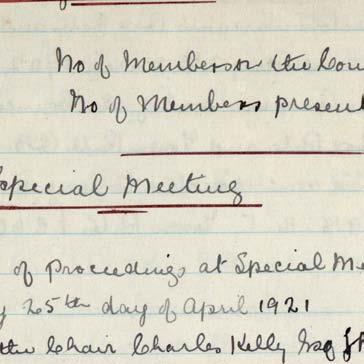 No of Members on the Cou
No of Members present
Special Meeting
of Proceedings at Special Me
25th day of April 1921
the Chair Charles Kelly Esq